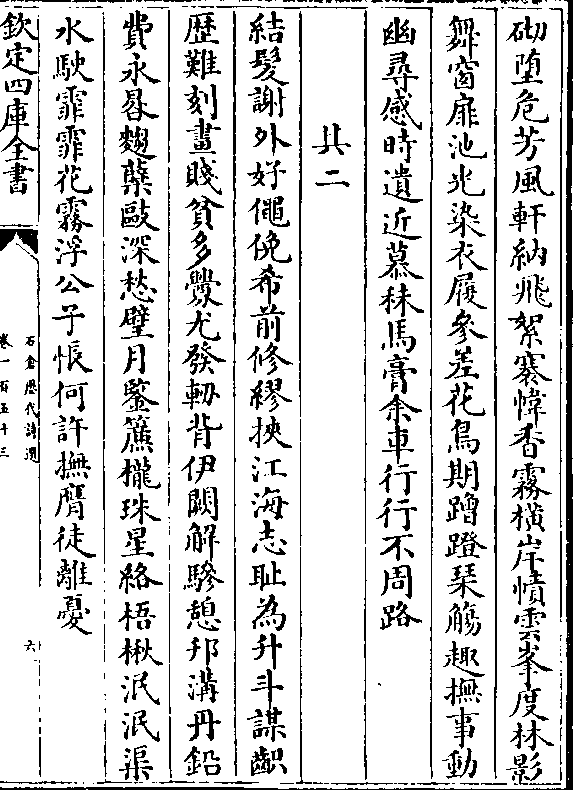 砌堕危芳風軒納飛絮褰幃香霧橫岸幘雲峯度林影
舞窗扉池光染衣屐參差花鳥期蹭蹬琹觴趣撫事動
幽尋感時遺近慕秣馬膏余車行行不周路
其二
結髮謝外好僶俛希前修繆挾江海志耻為升斗謀齟
歴難刻畫賤貧多釁尤發軔背伊闕解驂憩邗溝丹鉛
費永晷麴糵毆深愁璧月鑒簾櫳珠星絡梧楸泯泯渠
水駛霏霏花霧浮公子悵何許撫膺徒離憂
欽定四庫全書
石倉歴代詩選
卷一百五十三
六